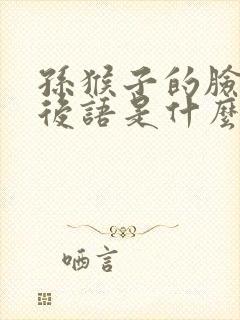 孫猴子的臉
後語是什麼
哂言